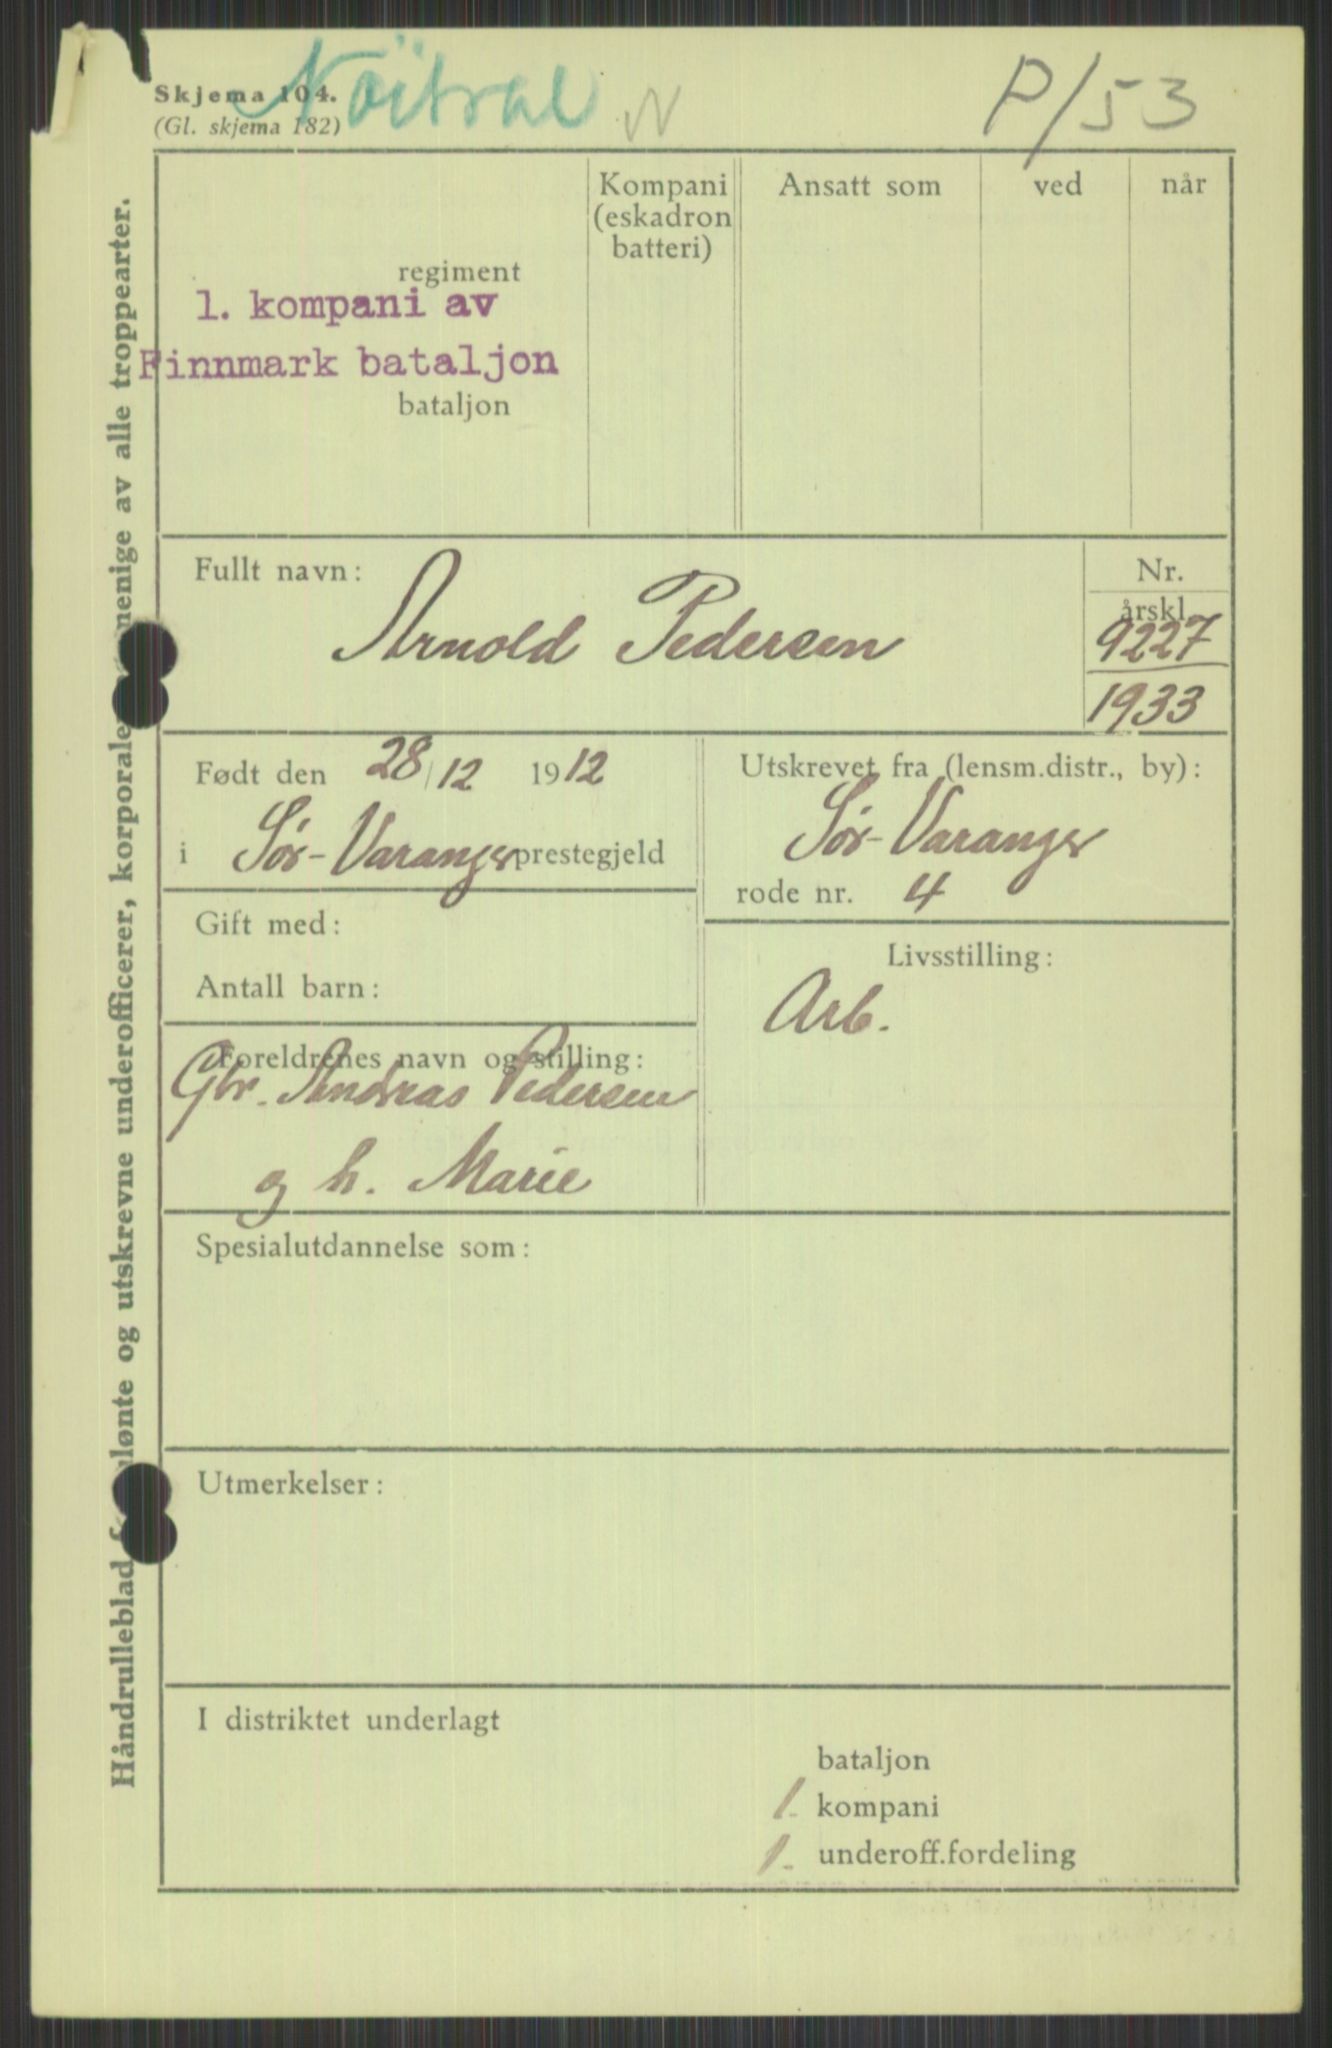 Nöitral N
P/53
Skjema 104.
(Gl. skjema 182)
Kompani
(eskadron
batteri)
Ansatt som
ved
når
regiment
1. kompani av
Finnmark bataljon
bataljon
Fullt navn:
Arnold Pedersen
Nr.
årskl.
9227
1933
Født den 28/12 1912
i Sør-Varanger prestegjeld
Utskrevet fra (lensm.distr., by):
Sør-Varanger
rode nr. 4
Gift med:
Antall barn:
Livsstilling:
Arb.
Foreldrenes navn og stilling:
Gbr. Andreas Pedersen
og h. Marie
Spesialutdannelse som:
Utmerkelser:
I distriktet underlagt
bataljon
1. kompani
1. underoff.fordeling
Håndrulleblad lønte og utskrevne underofficerer, korporaler menige av alle troppearter.